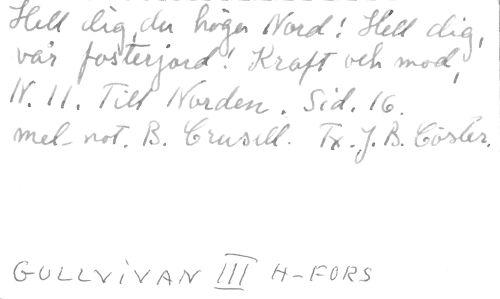 Hell dig, du höga Nord! Hell dig,
vår fosterjord! Kraft och mod,
N. 11. Till Norden. Sid. 16.
mel. not. B. Crusell. Tx. J. B. Cöster.
GULLVIVAN III H-FORS